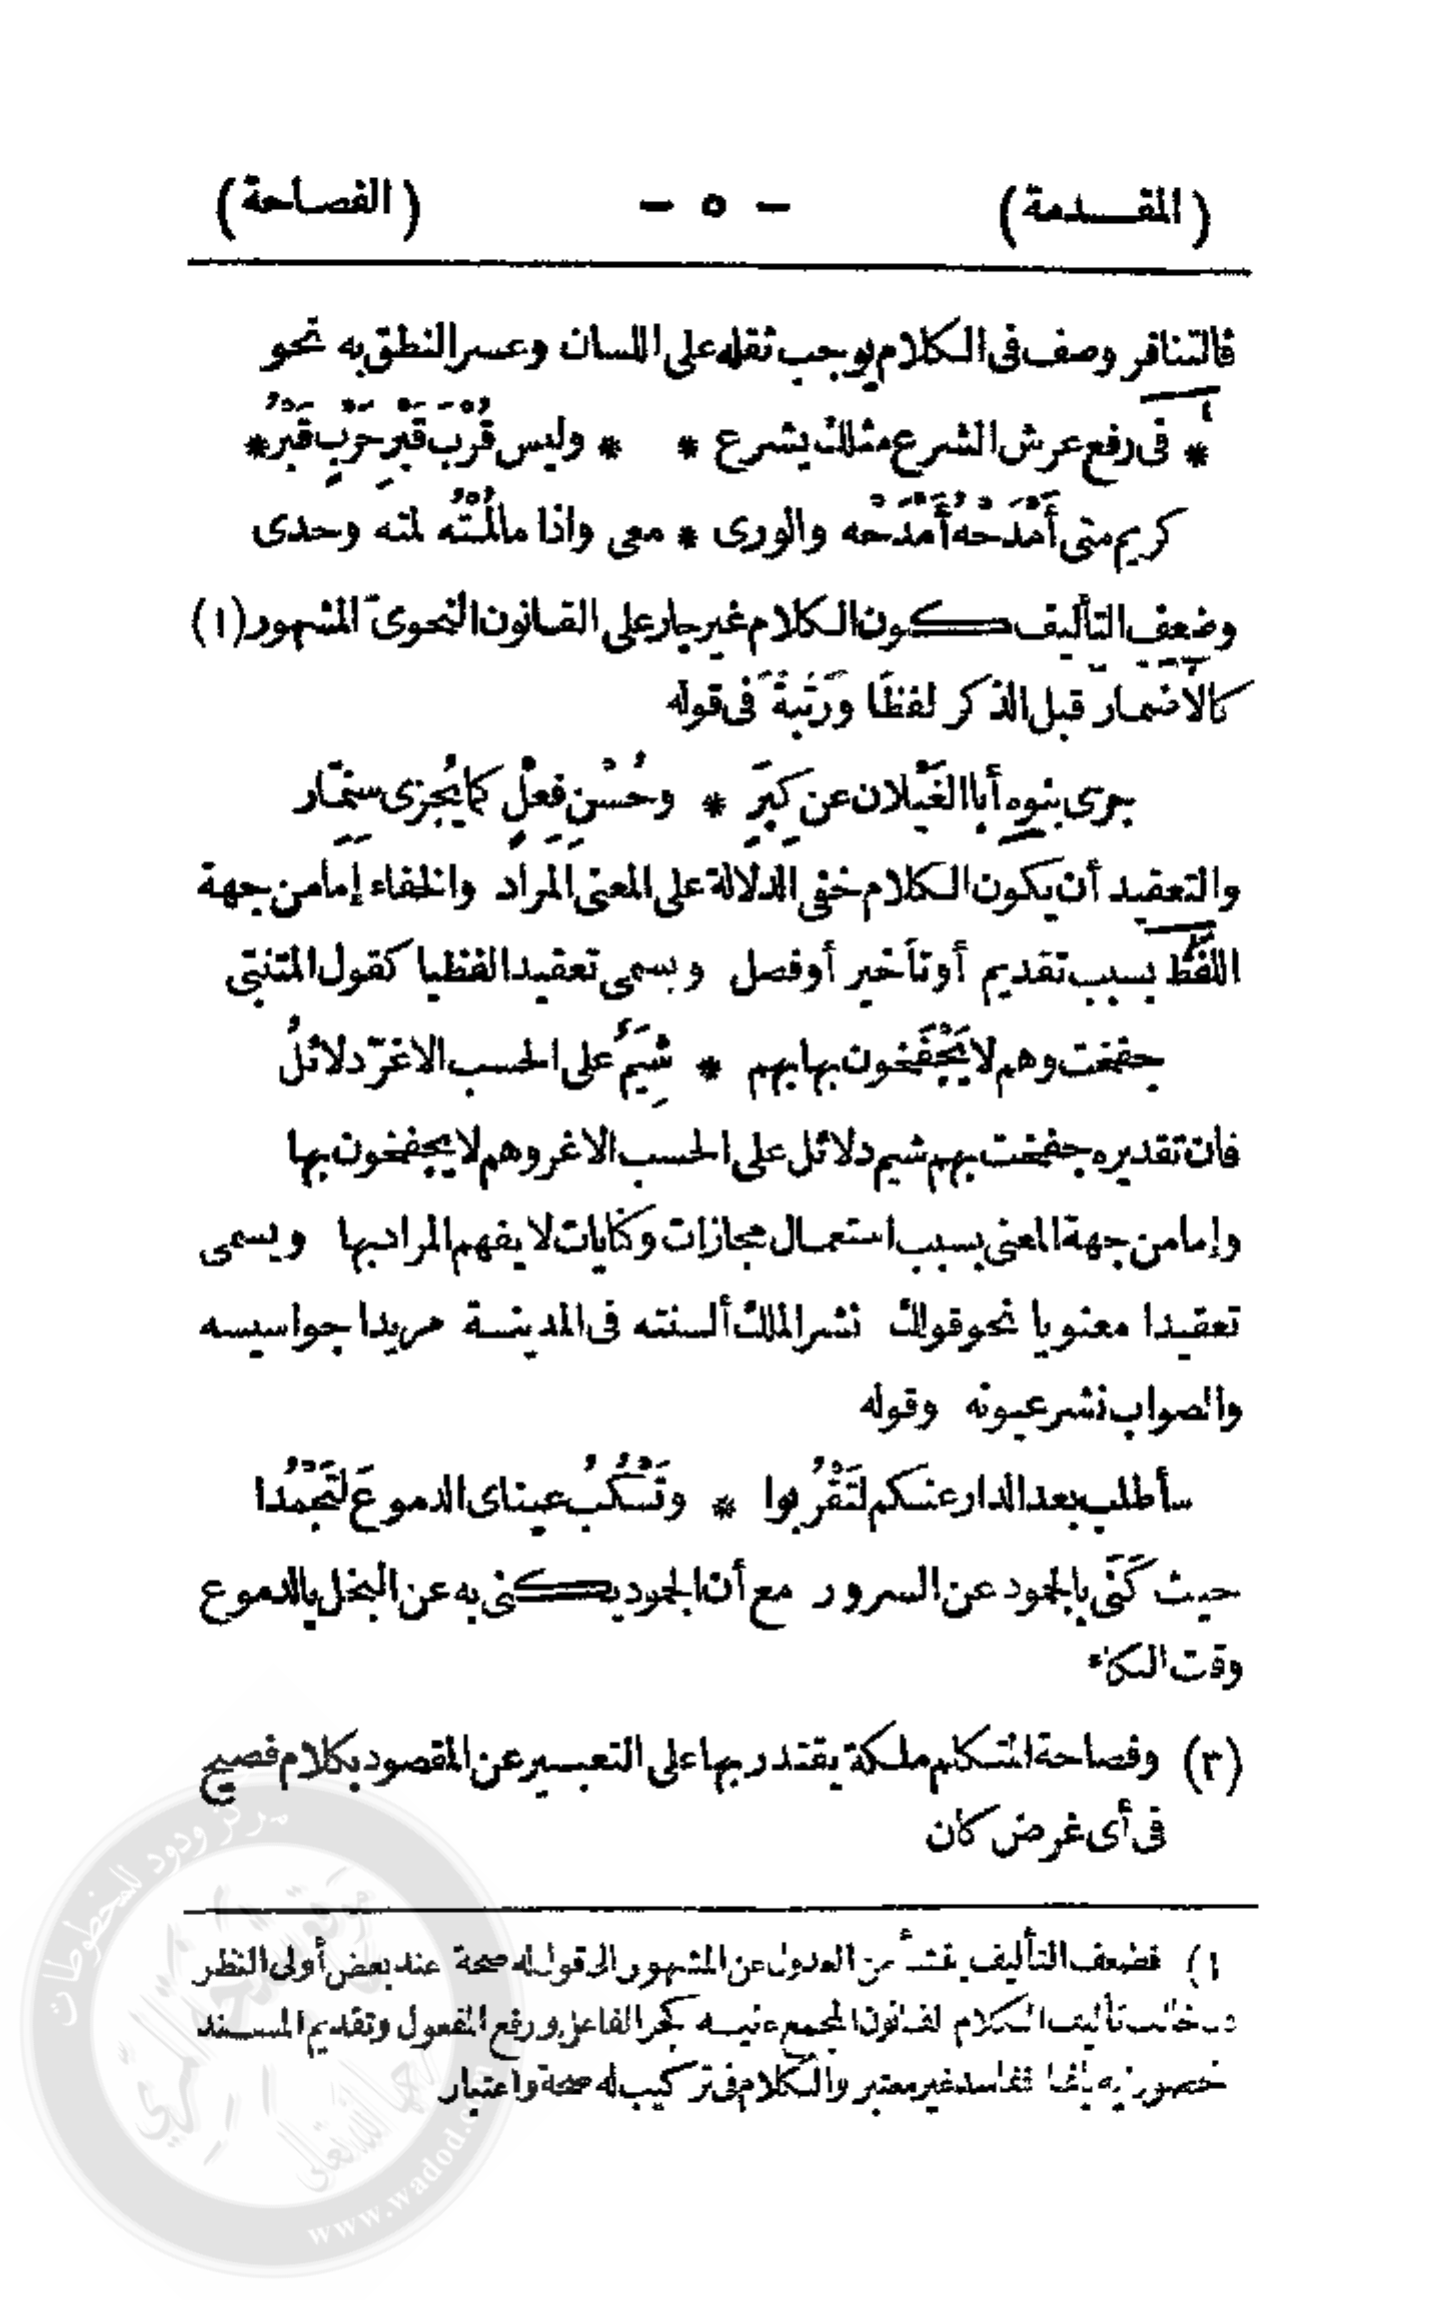 (المقـــدمة) — ٥ — (الفصاحة)
فالتنافر وصف فى الكلام يوجب ثقله على اللسان وعسر النطق به نحو
* فى رفع عرش الشرع مثلك يشرع * * وليس قُرْبَ قَبْرِ حَرْبٍ قَبْرُ *
كريم متى أَمْدَحْهُ أَمْدَحْه والورى * معى واذا مالُمْتُه لمته وحدى
وضعف التأليف كون الكلام غير جار على القانون النحوىّ المشهور (١)
كالاضمار قبل الذكر لفظًا وَرُتبةً فى قوله
جزى بنوه أبا الغَيْلان عن كِبَرٍ * وحُسْنِ فِعْلٍ كما يُجزى سِنِمّار
والتعقيد أن يكون الكلام خفى الدلالة على المعنى المراد والخفاء إما من جهة
اللفظ بسبب تقديم أو تأخير أو فصل ويسمى تعقيدا لفظيا كقول المتنبّى
جفخت وهم لا يَجْفَخون بها بهم * شِيَمٌ على الحسب الاغرّ دلائلُ
فان تقديره جفخت بهم شيم دلائل على الحسب الاغر وهم لا يجفخون بها
وإما من جهة المعنى بسبب استعمال مجازات وكنايات لا يفهم المراد بها ويسمى
تعقيدا معنويا نحو قولك نشر الملك ألسنته فى المدينة مريدا جواسيسه
والصواب نشر عيونه وقوله
سأطلب بعد الدار عنكم لتَقْرُبوا * وتَسْكُبُ عيناى الدموعَ لتَجْمُدا
حيث كَنَى بالجمود عن السرور مع أن الجمود يكنى به عن البخل بالدموع
وقت البكاء
(٣) وفصاحة المتكلم ملكة يقتدر بها على التعبير عن المقصود بكلام فصيح
فى أى غرض كان
١) فضعف التأليف ينشأ من العدول عن المشهور الى قول له صحة عند بعض أولى النظر
خالف تأليف الكلام لقانون المجمع عليه كجر الفاعل ورفع المفعول وتقديم المسند
ففاسد غير معتبر والكلام فى تركيب له صحة واعتبار
مركز ودود للمخطوطات
www.wadod.com